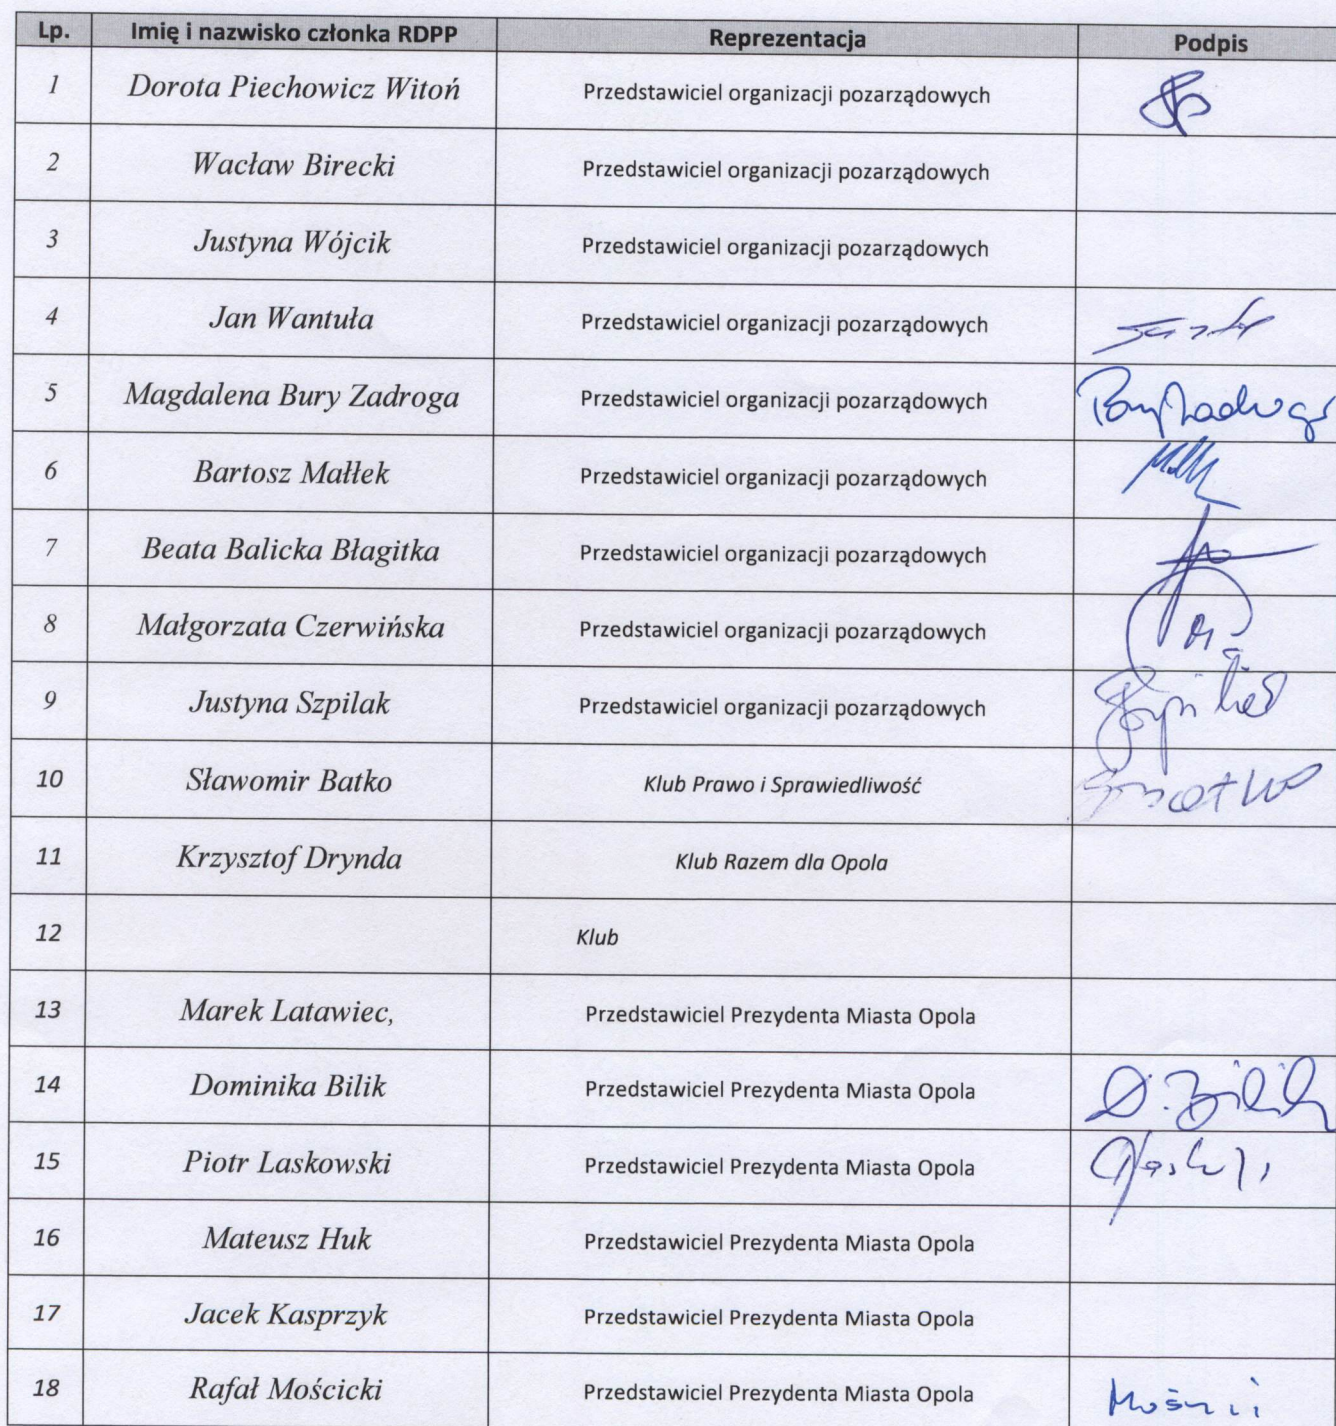 Lp. Imię i nazwisko członka RDPP Reprezentacja Podpis
1 Dorota Piechowicz Witoń Przedstawiciel organizacji pozarządowych
2 Wacław Birecki Przedstawiciel organizacji pozarządowych
3 Justyna Wójcik Przedstawiciel organizacji pozarządowych
4 Jan Wantuła Przedstawiciel organizacji pozarządowych
5 Magdalena Bury Zadroga Przedstawiciel organizacji pozarządowych
6 Bartosz Małłek Przedstawiciel organizacji pozarządowych
7 Beata Balicka Błagitka Przedstawiciel organizacji pozarządowych
8 Małgorzata Czerwińska Przedstawiciel organizacji pozarządowych
9 Justyna Szpilak Przedstawiciel organizacji pozarządowych
10 Sławomir Batko Klub Prawo i Sprawiedliwość
11 Krzysztof Drynda Klub Razem dla Opola
12 Klub
13 Marek Latawiec, Przedstawiciel Prezydenta Miasta Opola
14 Dominika Bilik Przedstawiciel Prezydenta Miasta Opola D. Bilik
15 Piotr Laskowski Przedstawiciel Prezydenta Miasta Opola
16 Mateusz Huk Przedstawiciel Prezydenta Miasta Opola
17 Jacek Kasprzyk Przedstawiciel Prezydenta Miasta Opola
18 Rafał Mościcki Przedstawiciel Prezydenta Miasta Opola